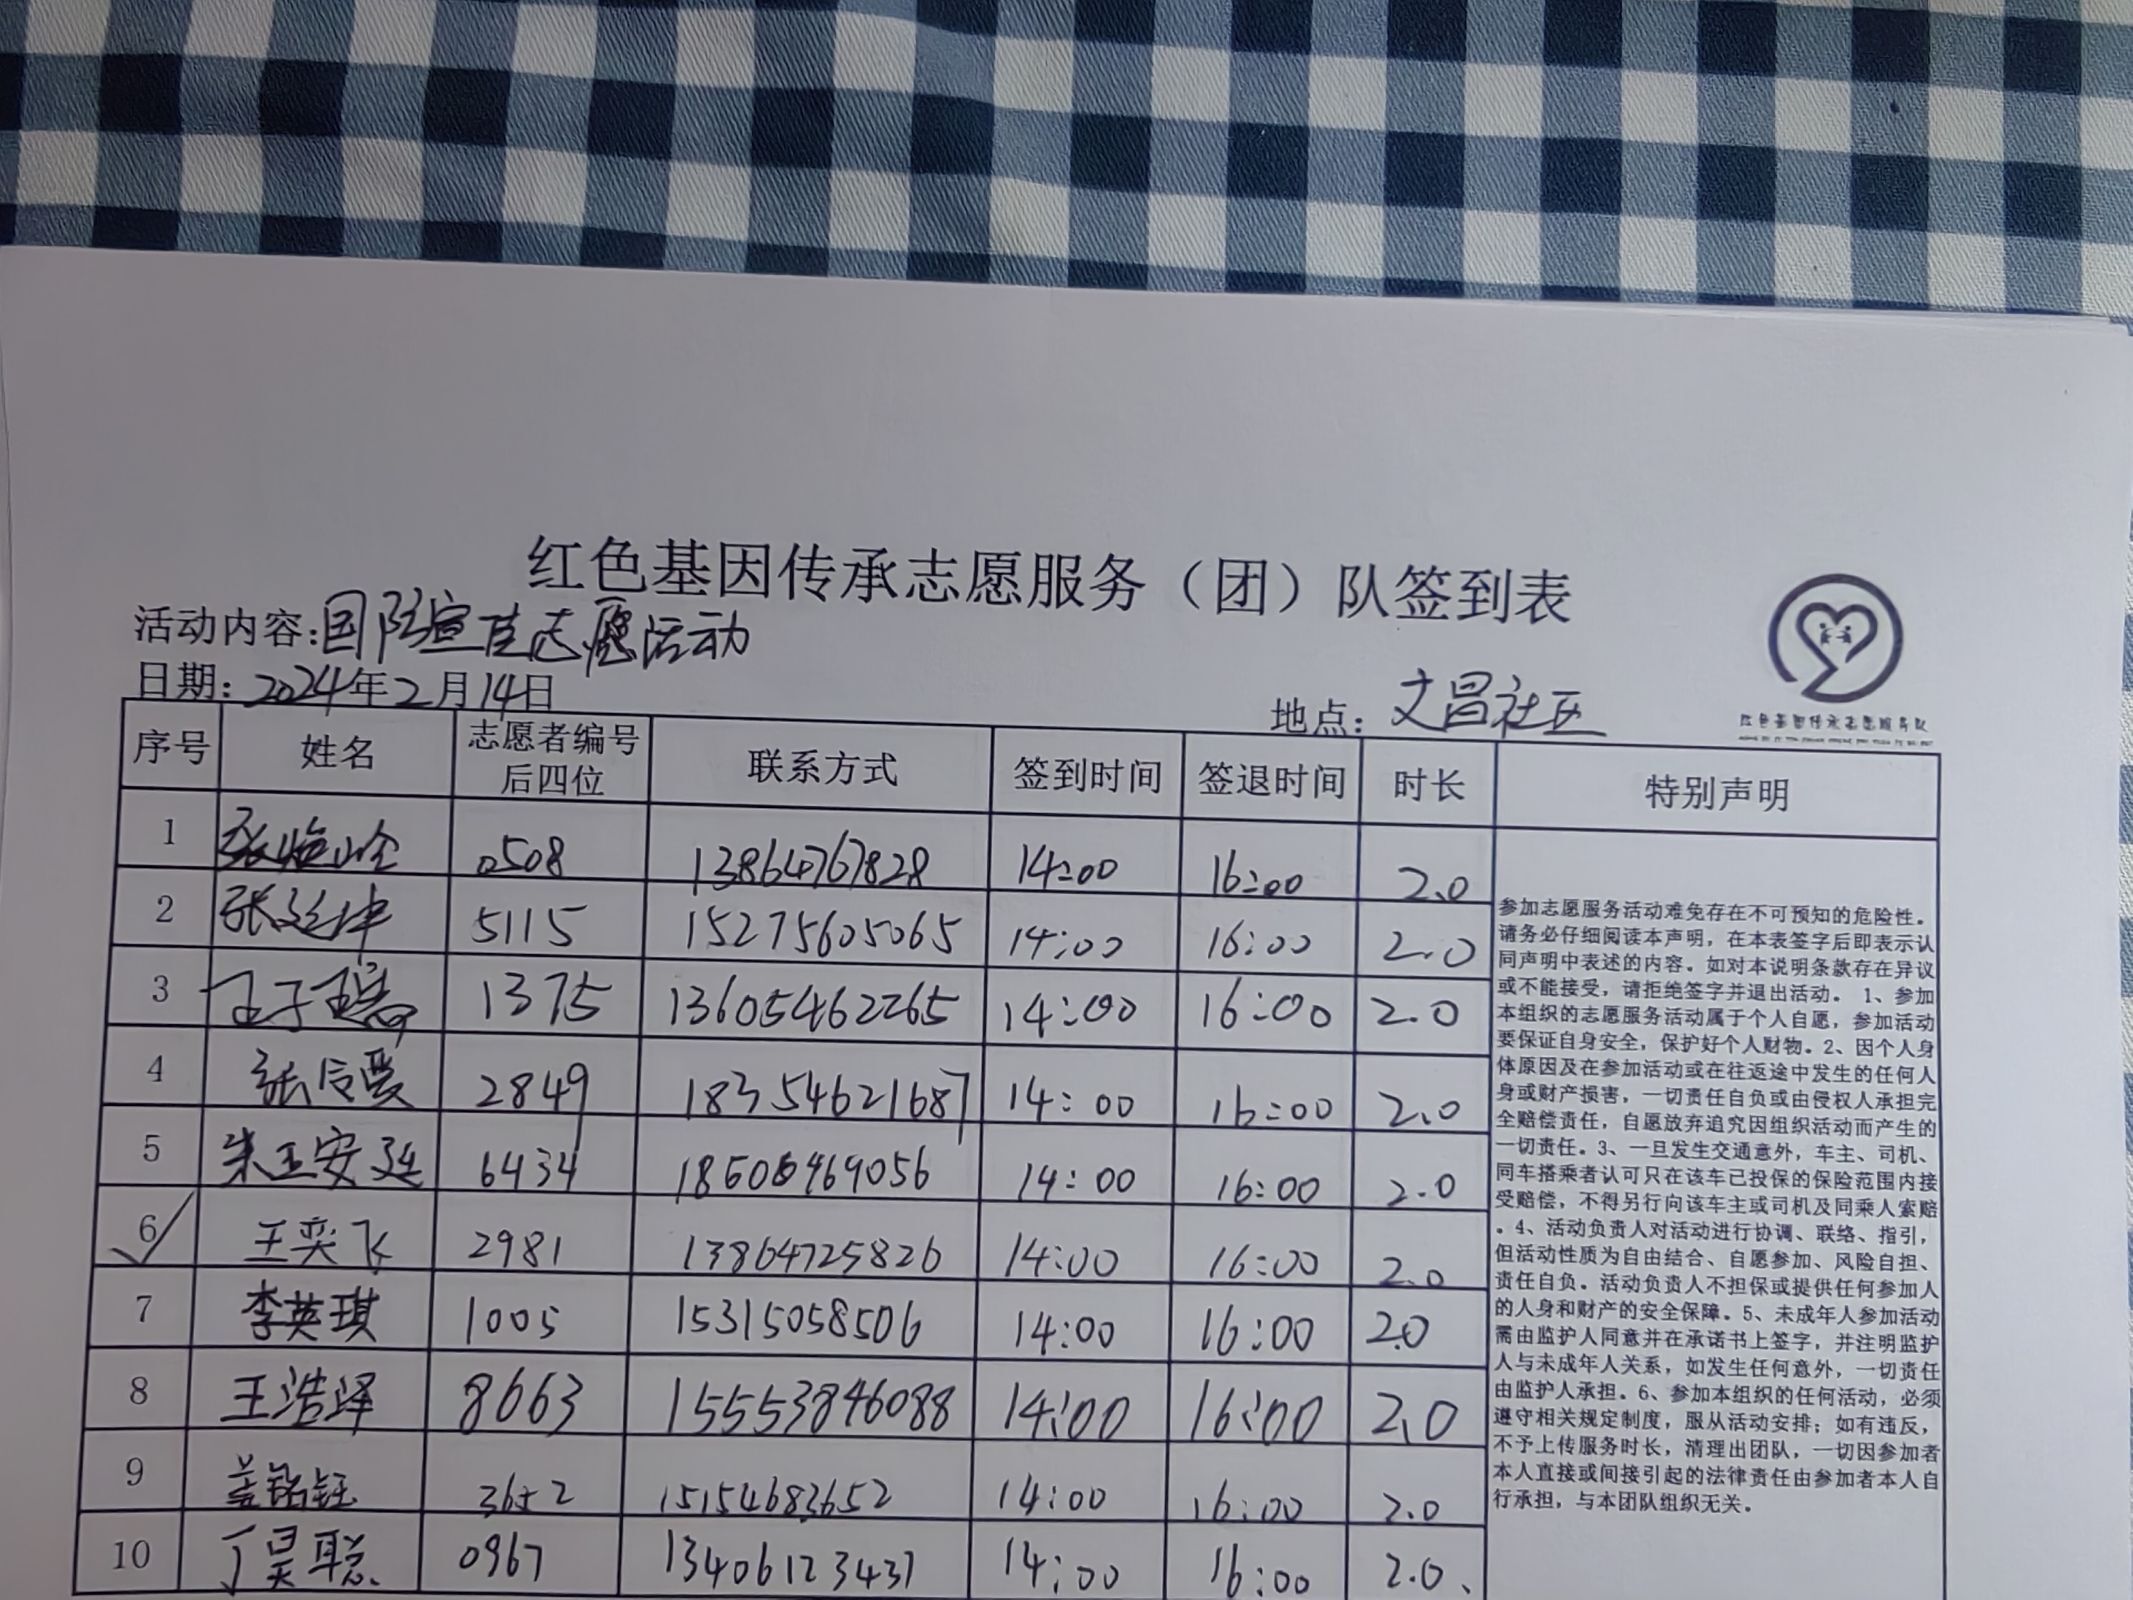 红色基因传承志愿服务（团）队签到表
活动内容:国防宣传志愿活动
日期: 2024年2月14日
地点: 文昌社区
红色基因传承志愿服务队
序号 姓名 志愿者编号后四位 联系方式 签到时间 签退时间 时长 特别声明
1 0508 13864767828 14:00 16:00 2.0
2 张延坤 5115 15275605065 14:00 16:00 2.0
3 王子 1375 13605462265 14:00 16:00 2.0
4 张 2849 18354621687 14:00 16:00 2.0
5 朱王安廷 6434 14:00 16:00 2.0
6 王奕飞 2981 13864725826 14:00 16:00 2.0
7 李英琪 1005 15315058506 14:00 16:00 2.0
8 王浩泽 8663 15553846088 14:00 16:00 2.0
9 盖铭钰 3652 15154683652 14:00 16:00 2.0
10 丁昊聪 0967 13406123437 14:00 16:00 2.0
参加志愿服务活动难免存在不可预知的危险性。
请务必仔细阅读本声明，在本表签字后即表示认
同声明中表述的内容。如对本说明条款存在异议
或不能接受，请拒绝签字并退出活动。 1、参加
本组织的志愿服务活动属于个人自愿，参加活动
要保证自身安全，保护好个人财物。2、因个人身
体原因及在参加活动或在往返途中发生的任何人
身或财产损害，一切责任自负或由侵权人承担完
全赔偿责任，自愿放弃追究因组织活动而产生的
一切责任。3、一旦发生交通意外，车主、司机、
同车搭乘者认可只在该车已投保的保险范围内接
受赔偿，不得另行向该车主或司机及同乘人索赔
。4、活动负责人对活动进行协调、联络、指引，
但活动性质为自由结合、自愿参加、风险自担、
责任自负。活动负责人不担保或提供任何参加人
的人身和财产的安全保障。5、未成年人参加活动
需由监护人同意并在承诺书上签字，并注明监护
人与未成年人关系，如发生任何意外，一切责任
由监护人承担。6、参加本组织的任何活动，必须
遵守相关规定制度，服从活动安排；如有违反，
不予上传服务时长，清理出团队，一切因参加者
本人直接或间接引起的法律责任由参加者本人自
行承担，与本团队组织无关。